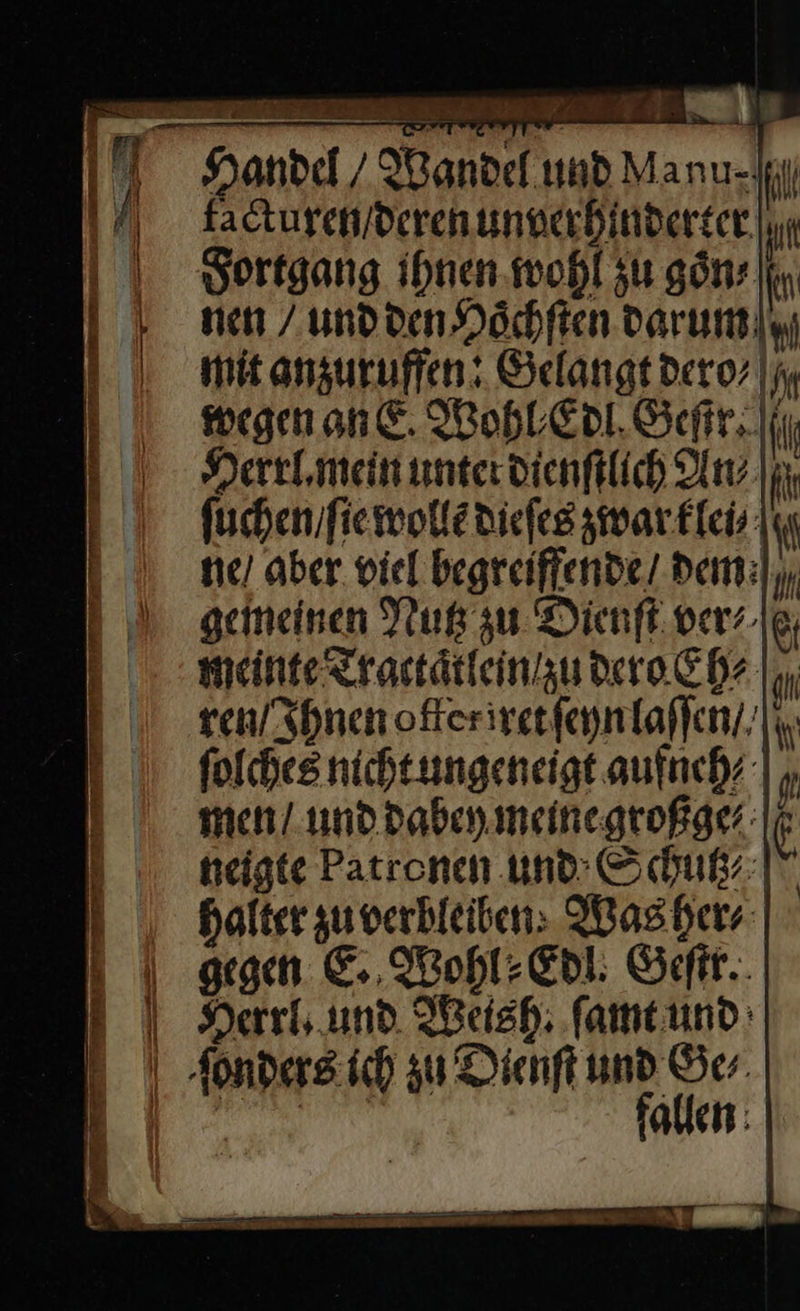 Handel / Wandel und Manu-
facturen/deren unverhinderter
Fortgang ihnen wohl zu goͤn-
nen / und den Hoͤchſten darum
mit anzuruffen: Gelangt dero-
wegen an E. Wohl-Edl. Geſtr.
Herrl. mein unter dienſtlich An-
ſuchen/ſie wollẽ dieſes zwar klei-
ne/ aber viel begreiffende/ dem
gemeinen Nutz zu Dienſt ver-
meinte Tractaͤtlein/zu dero Eh-
ren/Ihnen offeriret ſeyn laſſen/
ſolches nicht ungeneigt aufneh-
men/ und dabey meine großge-
neigte Patronen und Schutz-
halter zu verbleiben. Was her-
gegen E. Wohl-Edl. Geſtr.
Herrl. und Weish. ſamt und
ſonders ich zu Dienſt und Ge-
fallen